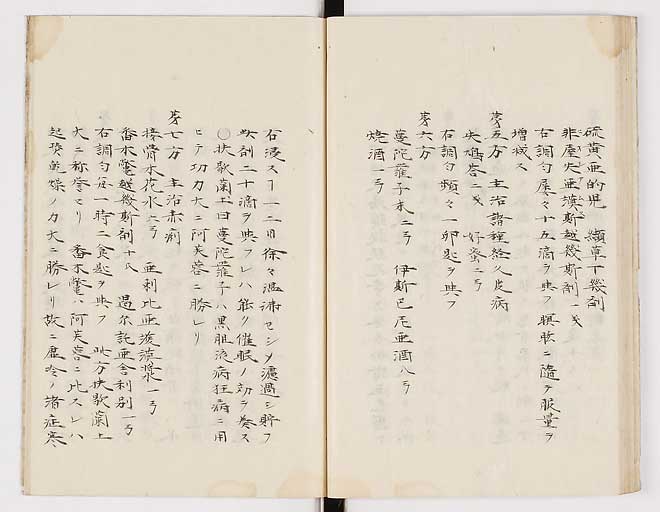 硫黄亜的児 纈草丁幾剤
非屋失亜謨斯越幾斯剤一戔
右調勻屡々十五滴ヲ与フ瞑眩ニ随テ服量ヲ
増減ス
第五方 主治諸種経久皮病
失鳩答二戔 好蜜二弓
右調勻頻々一卵匙ヲ与フ
第六方
蔓陀蘿子末二弓 伊斯巴尼亜酒八弓
焼酒一弓
右浸スコト一二日徐々温沸セシメ濾過シ貯フ
此剤二十滴ヲ与フレハ能ク催眠ノ効ヲ奏ス
〇扶歇蘭土曰蔓陀蘿子ハ黒胆液病狂病ニ用
ヒテ功力大ニ阿芙蓉ニ勝レリ
第七方 主治赤痢
接骨木花水六弓 亜剌比亜護謨漿一弓
番木鼈越幾斯剤十氏 遏尓託亜舎利別一弓
右調勻每一時二食匙ヲ与フ 此方扶歇蘭土
大ニ称誉セリ 番木鼈ハ阿芙蓉ニ比スレハ
起発乾燥ノ力大ニ勝レリ故ニ虚冷ノ諸症寒